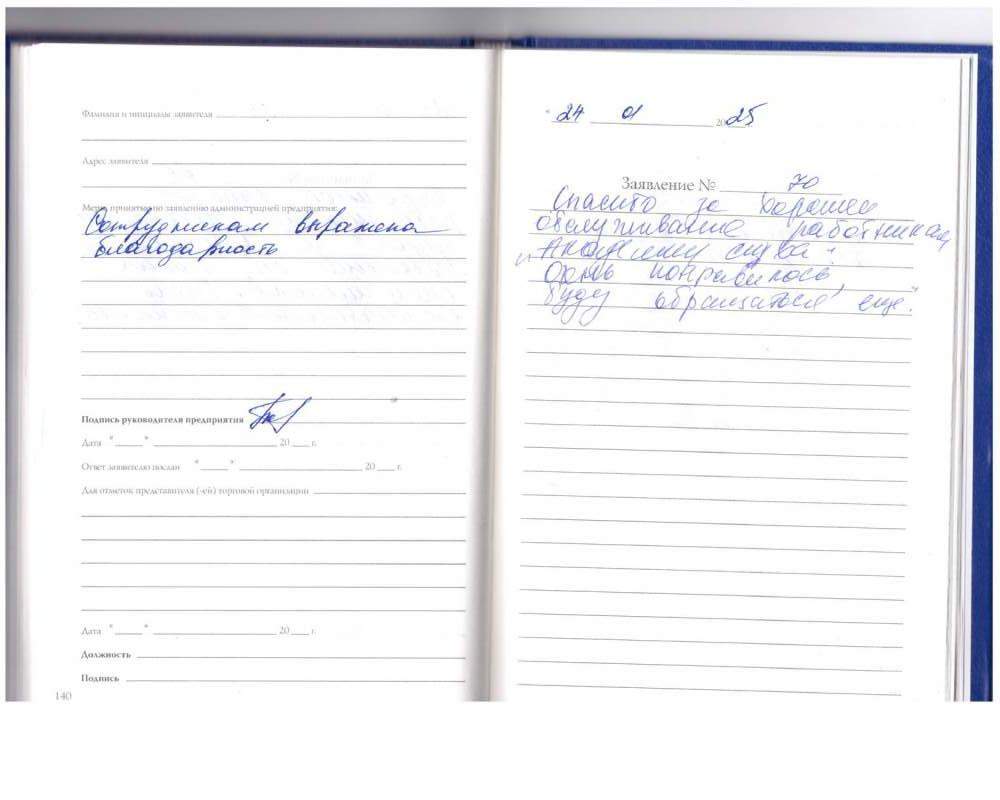 Фамилия и инициалы заявителя
Адрес заявителя
Меры принятые по заявлению администрацией предприятия:
Сотрудникам выражена
благодарность
Подпись руководителя предприятия
Дата " " 20 г.
Ответ заявителю послан " " 20 г.
Для отметок представителя (-ей) торговой организации
Дата " " 20 г.
Должность
Подпись
140
"24 01 2025
Заявление № 70
Спасибо за хорошее
обслуживание работникам
„Академии слуха".
Очень понравилось,
буду обращаться еще."